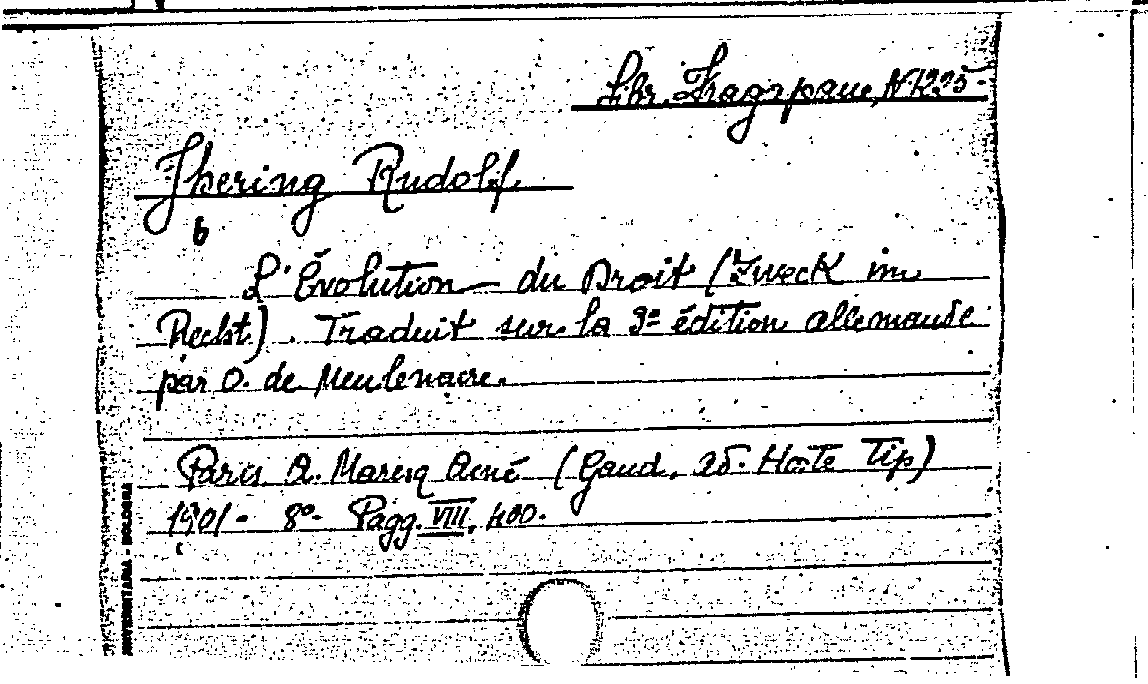 Libr. Fragapane, N 1225.
Jhering Rudolf.
b
L'Évolution du Droit (Zweck im
Recht). Traduit sur la 3e édition allemande
par O. de Meulenaere.
Paris A. Maresq Ainé (Gand. Ad. Hoste Tip)
1901 - 8º - Pagg. VIII, 400.
- BOLOGNA